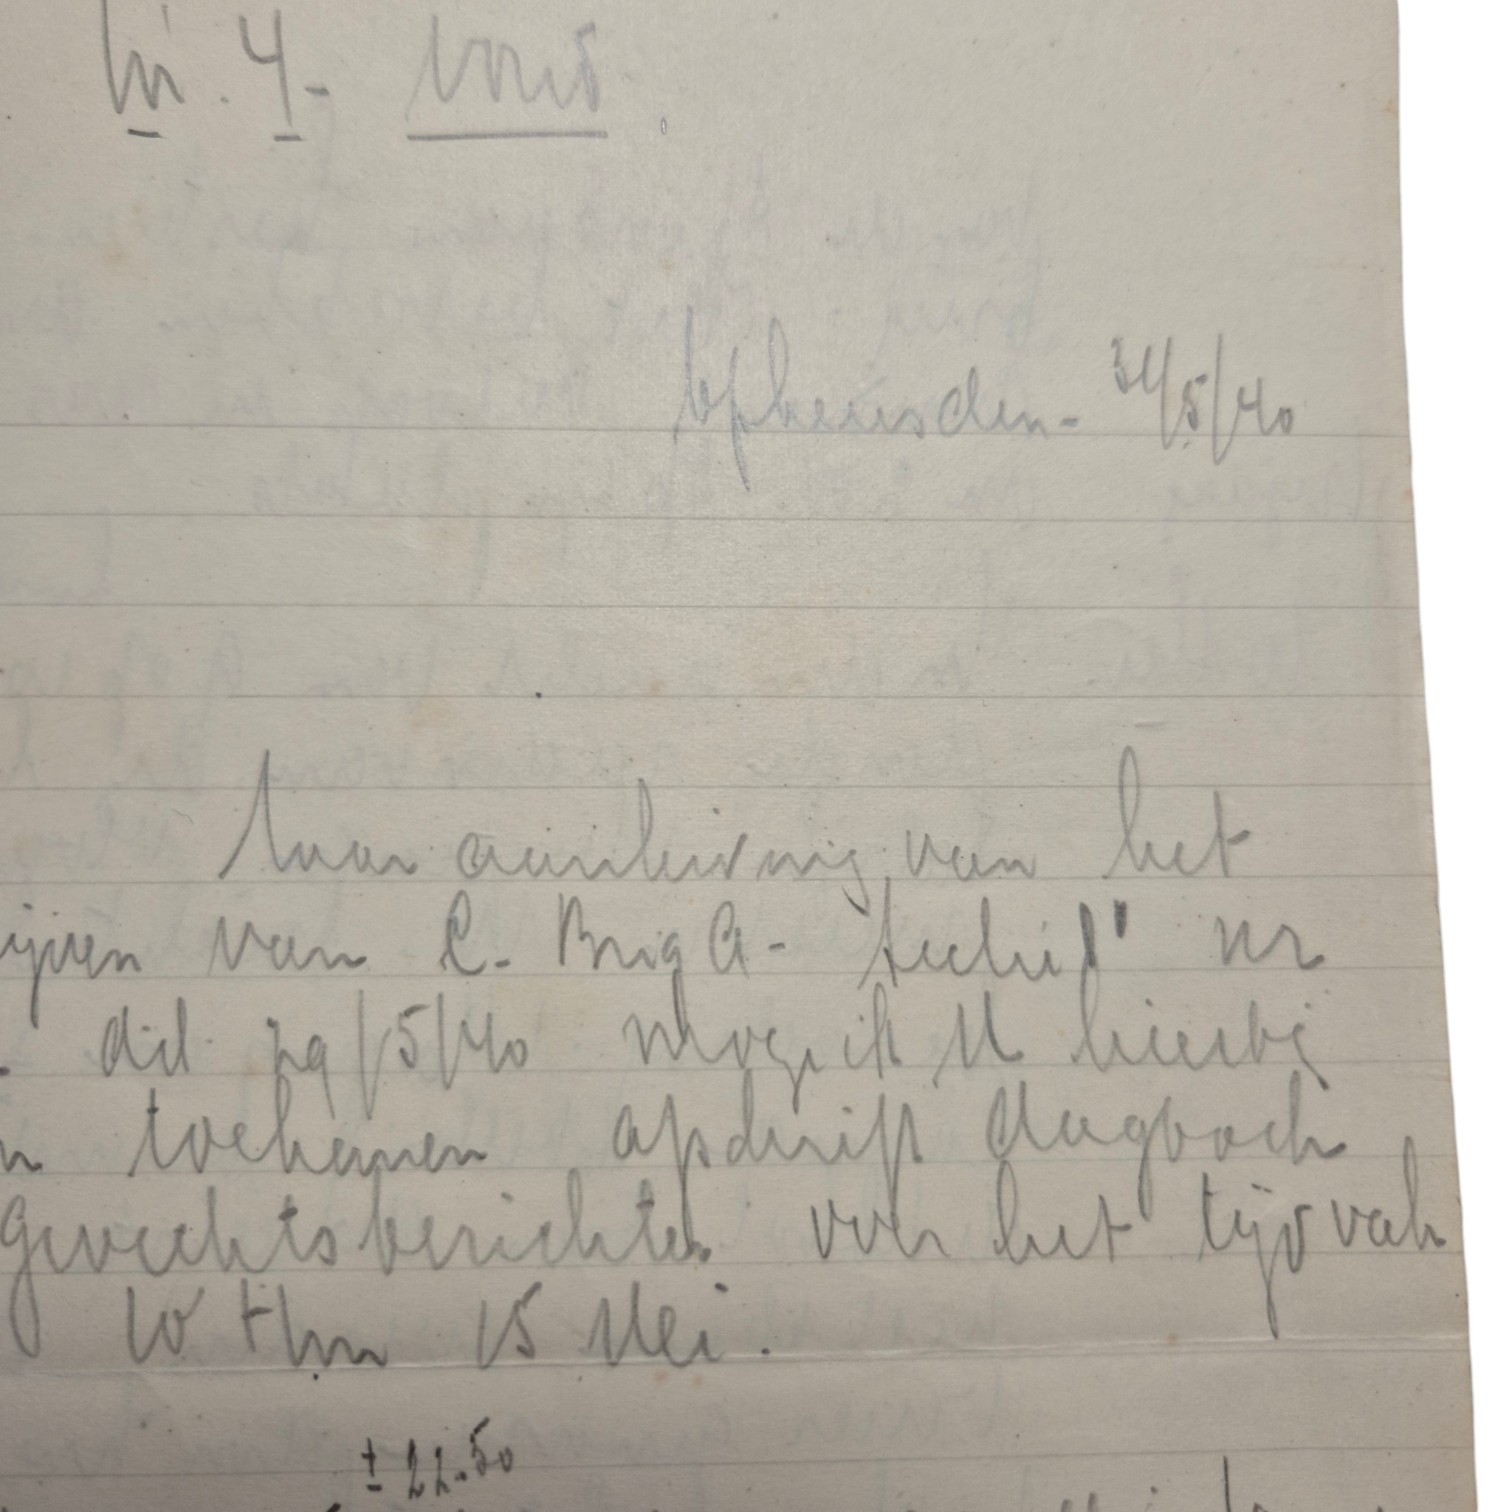 Nr. 4.
Opheusden - 31/5/40
Naar aanleiding van het
ijven van C. Brig A - nr
dd. 29/5/40 moge ik U hierbij
n toekomen afschrift dagboek
Gevechtsberichten over het tijdvak
10 t/m 15 Mei.
± 22.50